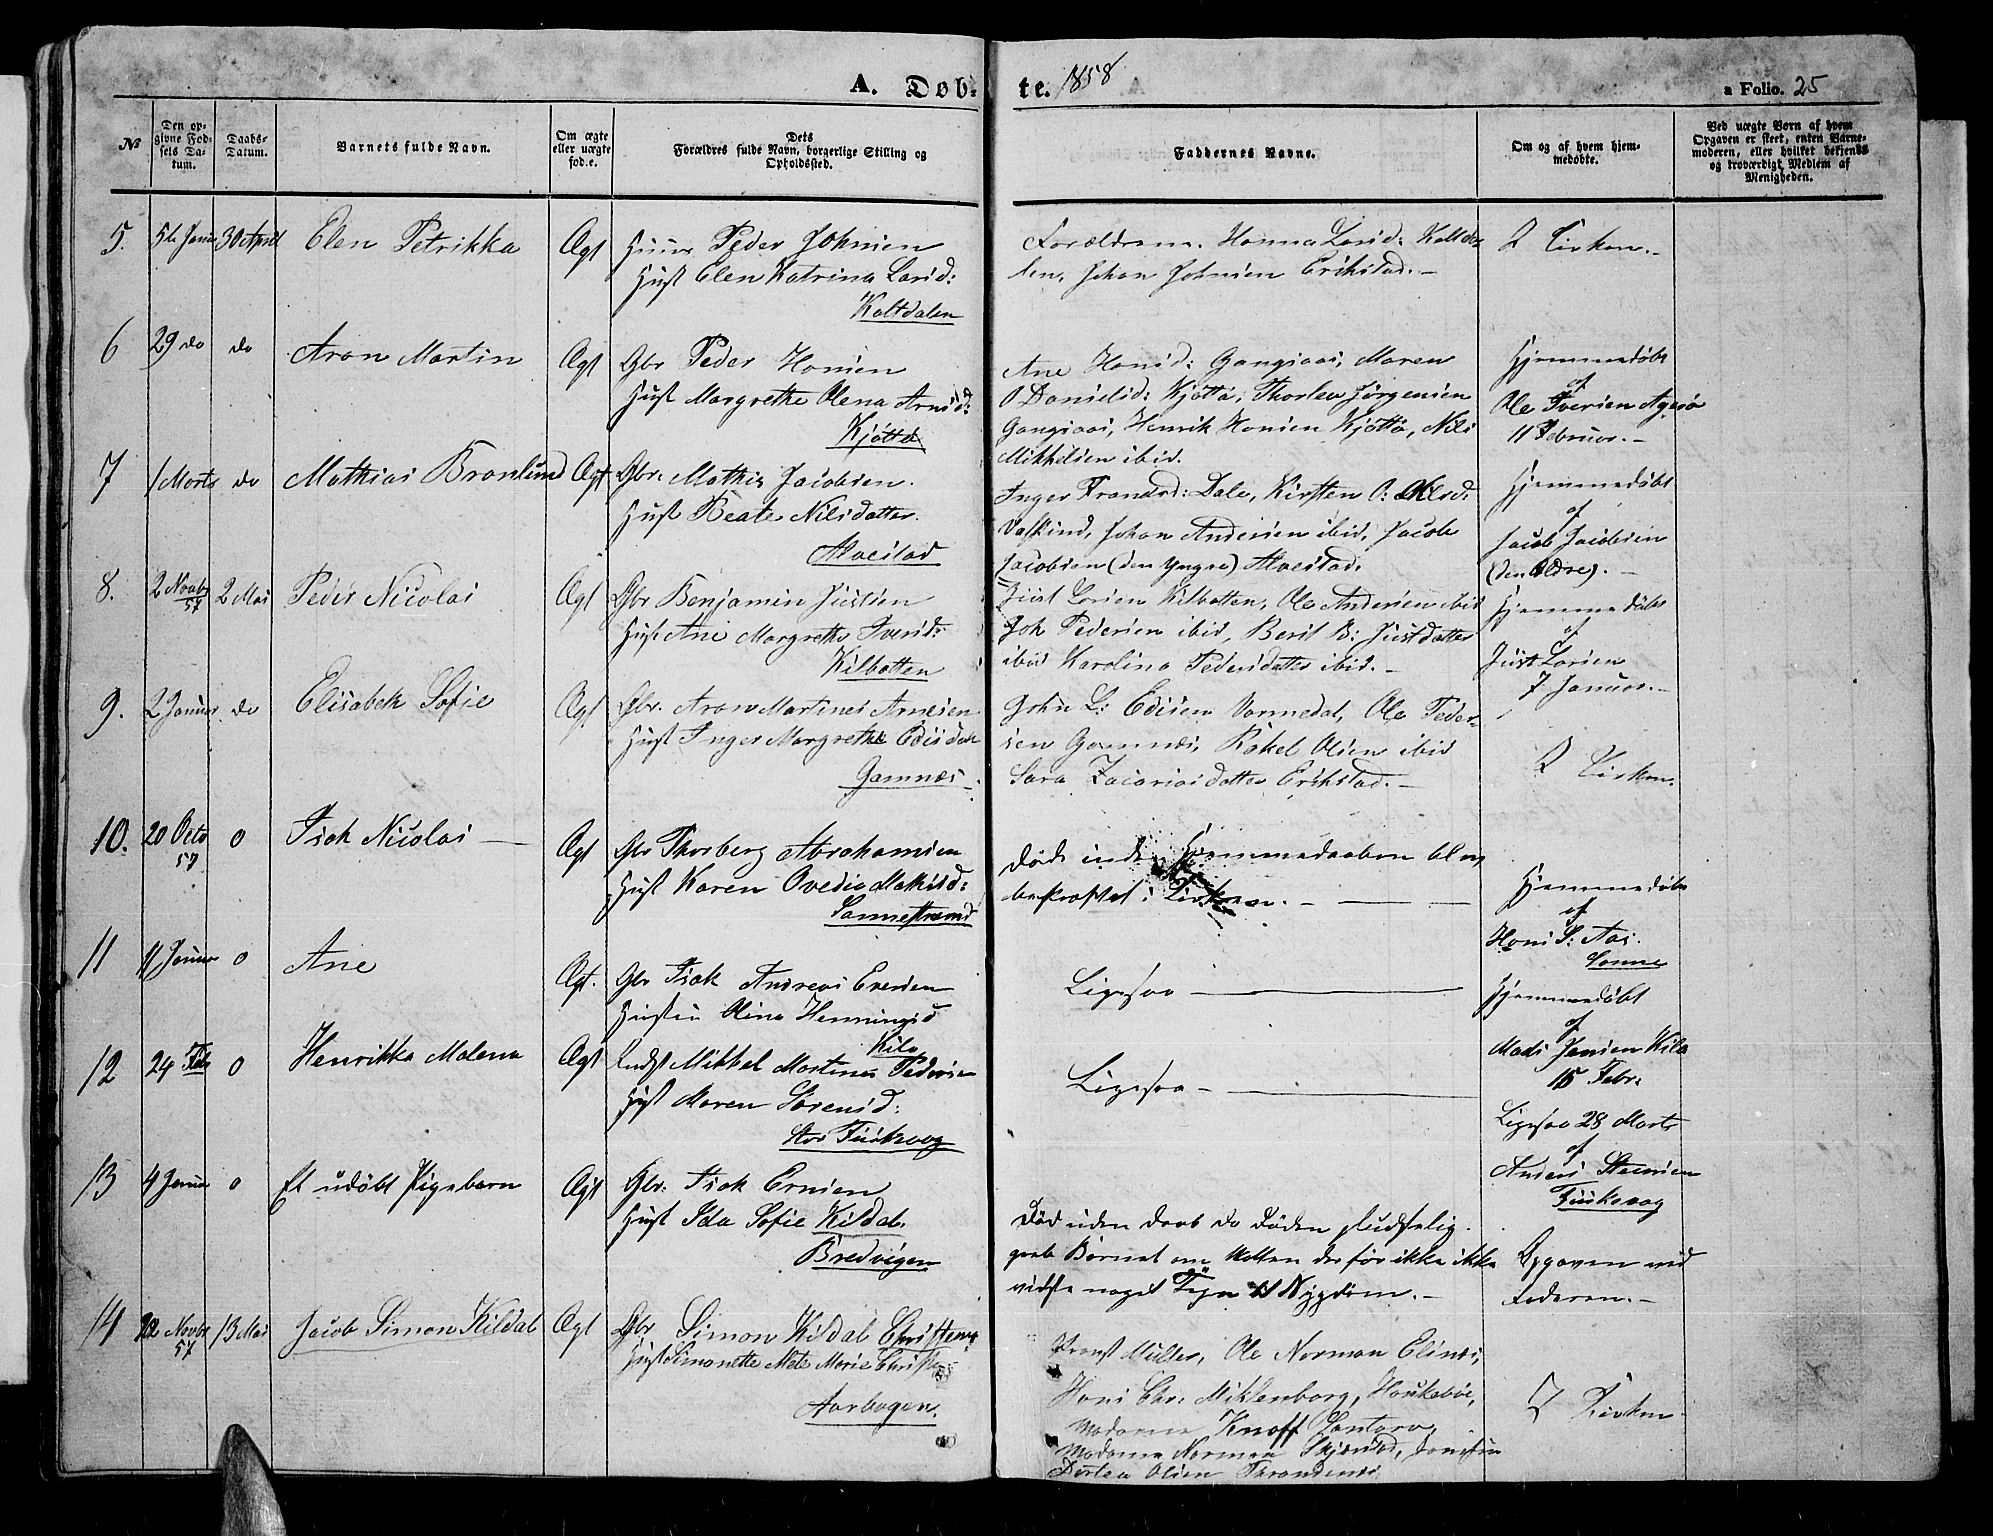 A. Døb-
te. 1858
a Folio. 25
№
Den op-
givne Fød-
sels Da-
tum.
Daabs-
Datum.
Barnets fulde Navn.
Om ægte
eller uægte
fød.e.
Dets
Forældres fulde Navn, borgerlige Stilling og
Opholdssted.
Faddernes Navne.
Om og af hvem hjem-
medøbte.
Ved uægte Børn af hvem
Opgaven er skeet, enten Barne-
moderen, eller hvilket bekjendt
og troværdigt Medlem af
Menigheden.
5. 5te Januar 30 April Elen Petrikka Ægt Peder Johnsen
Hust Elen Katrina Larsd:
Kaltdalen
Forældrene. Hanna Larsd: Kaltda-
len, Johan Johnsen Erikstad. —
I Kirken. —
6 29 do do Aron Martin Ægt Gbr Peder Hansen
Hust Margrethe Olena Arnsd:
Kjøtta
Ane Hansd: Gangsaas, Maren
O Danielsd: Kjøtta, Thorlev Jørgensen
Gangsaas, Henrik Hansen Kjøtta, Nils
Mikkelsen ibid.
Hjemmedøbt
af
Ole Iversen Agesø
11 Februar. —
7 1 Marts do Mathias Bronlund Ægt Gbr: Mathis Jacobsen.
Hust Beate Nilsdatter.
Alvestad
Inger Fransd: Dale, Kirsten O: Olsd:
Johan Andersen ibid, Jacob
Jacobsen (den Yngre) Alvestad.
Hjemmedøbt
af
Jacob Jacobsen
(den Ældre). —
8. 2 Novbr 57 2 Mai Peder Nicolai Ægt Gbr Benjamin Justsen
Hust Ane Margrethe Iversd:
Kilbotten
Just Larsen Kilbotten, Ole Andersen ibid
Joh Pedersen ibid, Berit B: Justdatter
ibid Karolina Pedersdatter ibid. —
Hjemmedøbt
af
Just Larsen
7 Januar. —
9. 2 Januar do Elisabeth Sofie Ægt Gbr. Aron Martines Arnesen
Hust Inger Margrethe Edisdatt
Gamnæs
John L: Edisen Vormedal, Ole Peder-
sen Gamnæs, Rakel Olsen ibid
Sara Zacariasdatter Erikstad. —
I Kirken.
10. 20 Octo 57 0 Isak Nicolai — Ægt Gbr Thorberg Abrahamsen
Hust Karen Ovedia Mathisd:
Sannestrand
Døde inden Hjemmedaaben blev
bekræftet i Kirken. —
Hjemmedøbt
af
Hans S: Aas.
Sanne
11 11 Januar 0 Ane Ægt. Gbr Isak Andreas Evensen
Hustru Olina Henningsd
Kila
Ligesaa —
Hjemmedøbt
af
Mads Jensen Kila
15 Febr:
12 24 Feb 0 Henrikka Malena Ægt Indst Mikkel Martines Pedersen
Hust Maren Sørensd:
Stor Finkevog
Ligesaa —
Ligesaa 28 Marts
af
Anders Steensen
Finkevog
13 4 Januar 0 Et udøbt Pigebarn Ægt Gbr: Isak Ernsen
Hust Ida Sofie Kildal.
Bredvigen
Død uden Daab da Døden pludselig
greb Barnet om Natten derfor ikke ikke
vidste noget Tegn til Sygdom. —
Opgaven ved
Faderen. —
14 22 Novbr 57 13 Mai Jacob Simon Kildal Ægt Gbr Simon Kildal Christensen
Hust Simonette Mete Marie
Aarbogen.
Provst Muller, Ole Norman Elines,
Hans Chr: Miklenborg, Haukebøe,
Madame Knoff Santorv,
Madame Norman Skjærstad,
Dorlea Olsen Throndenes
I Kirken